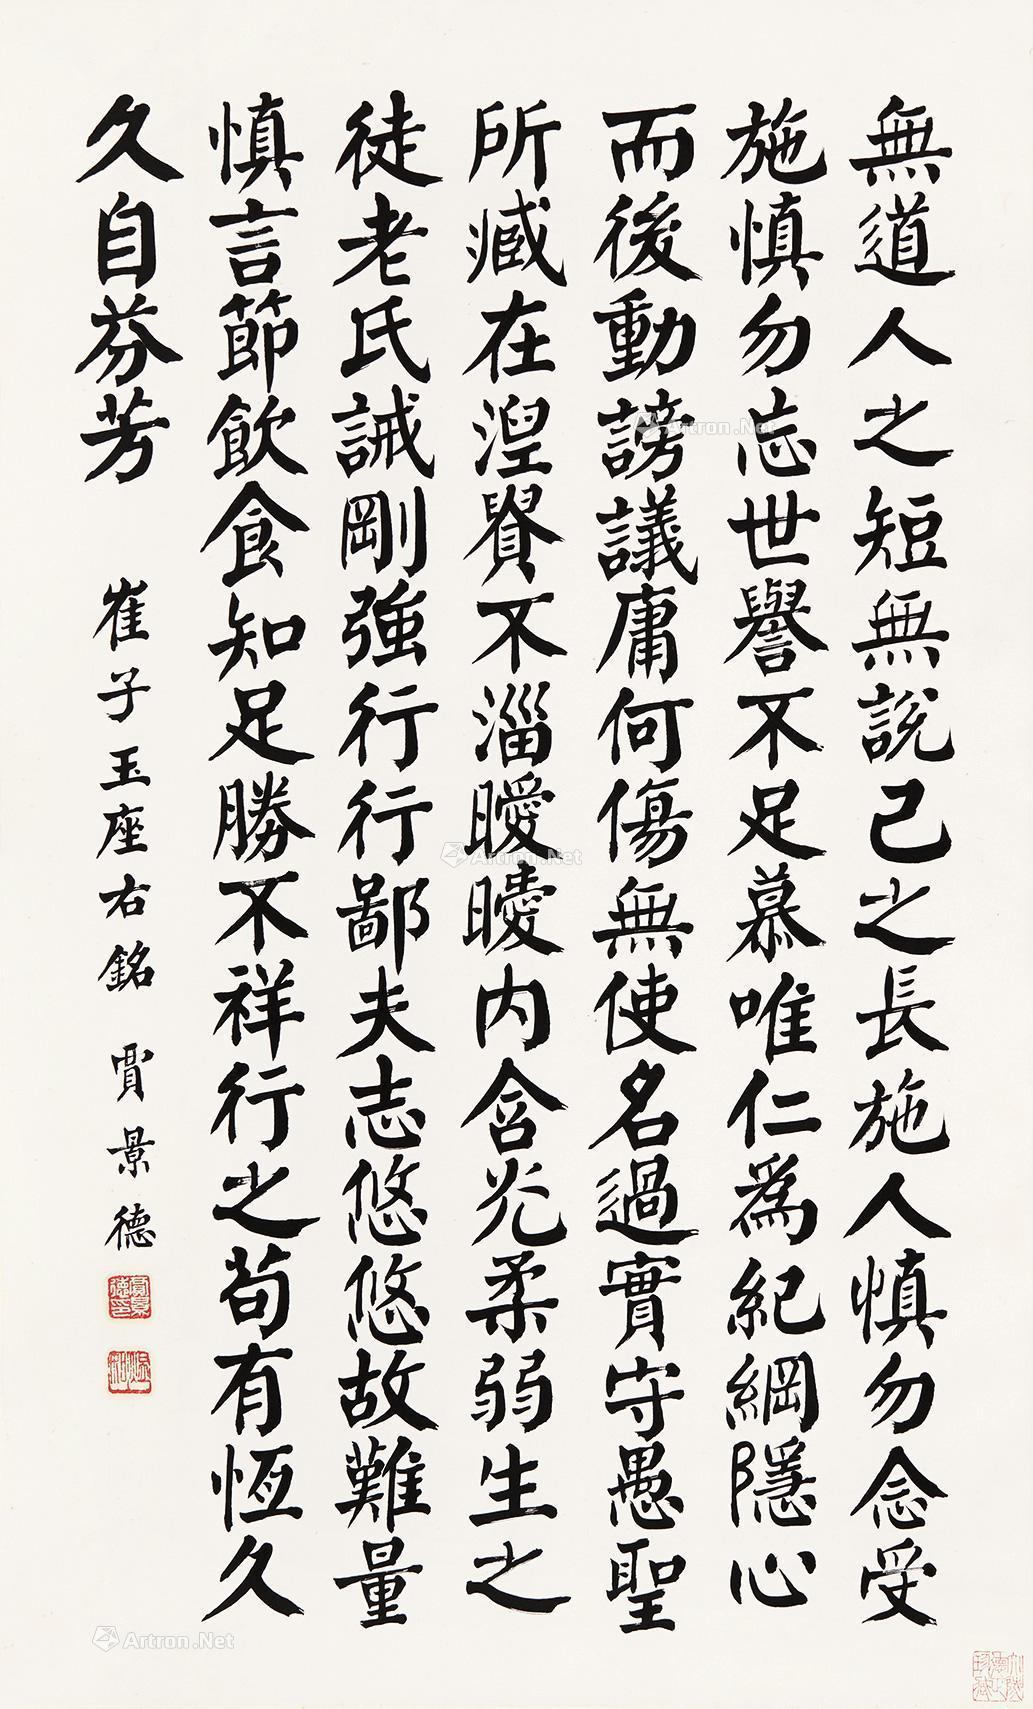 無道人之短無說己之長施人慎勿念受
施慎勿忘世譽不足慕唯仁爲紀綱隱心
而後動謗議庸何傷無使名過實守愚聖
所臧在湼貴不淄曖曖內含光柔弱生之
徒老氏誡剛強行行鄙夫志悠悠故難量
慎言節飲食知足勝不祥行之苟有恆久
久自芬芳
崔子玉座右銘 賈景德
賈景德印
Artron.Net
Artron.Net
Artron.Net